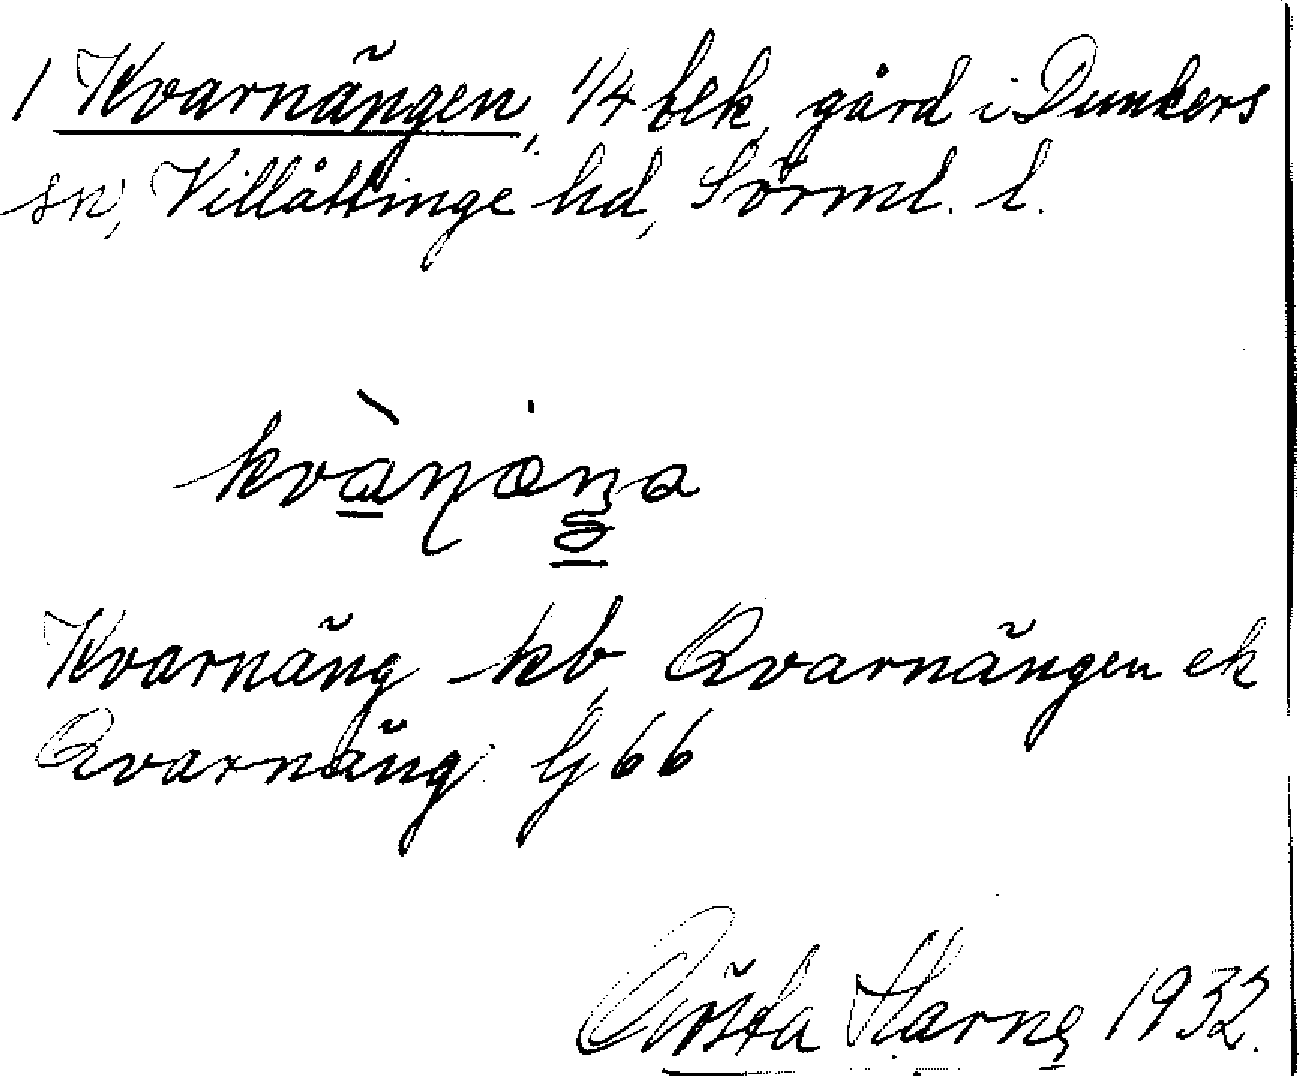 1 Kvarnängen, 1/4 blk, gård i Dunkers
sn, Villåttinge hd, Sörml. l.
Kvarnäng kb, Qvarnängen ek
Qvarnäng G 66
Gösta 1932.